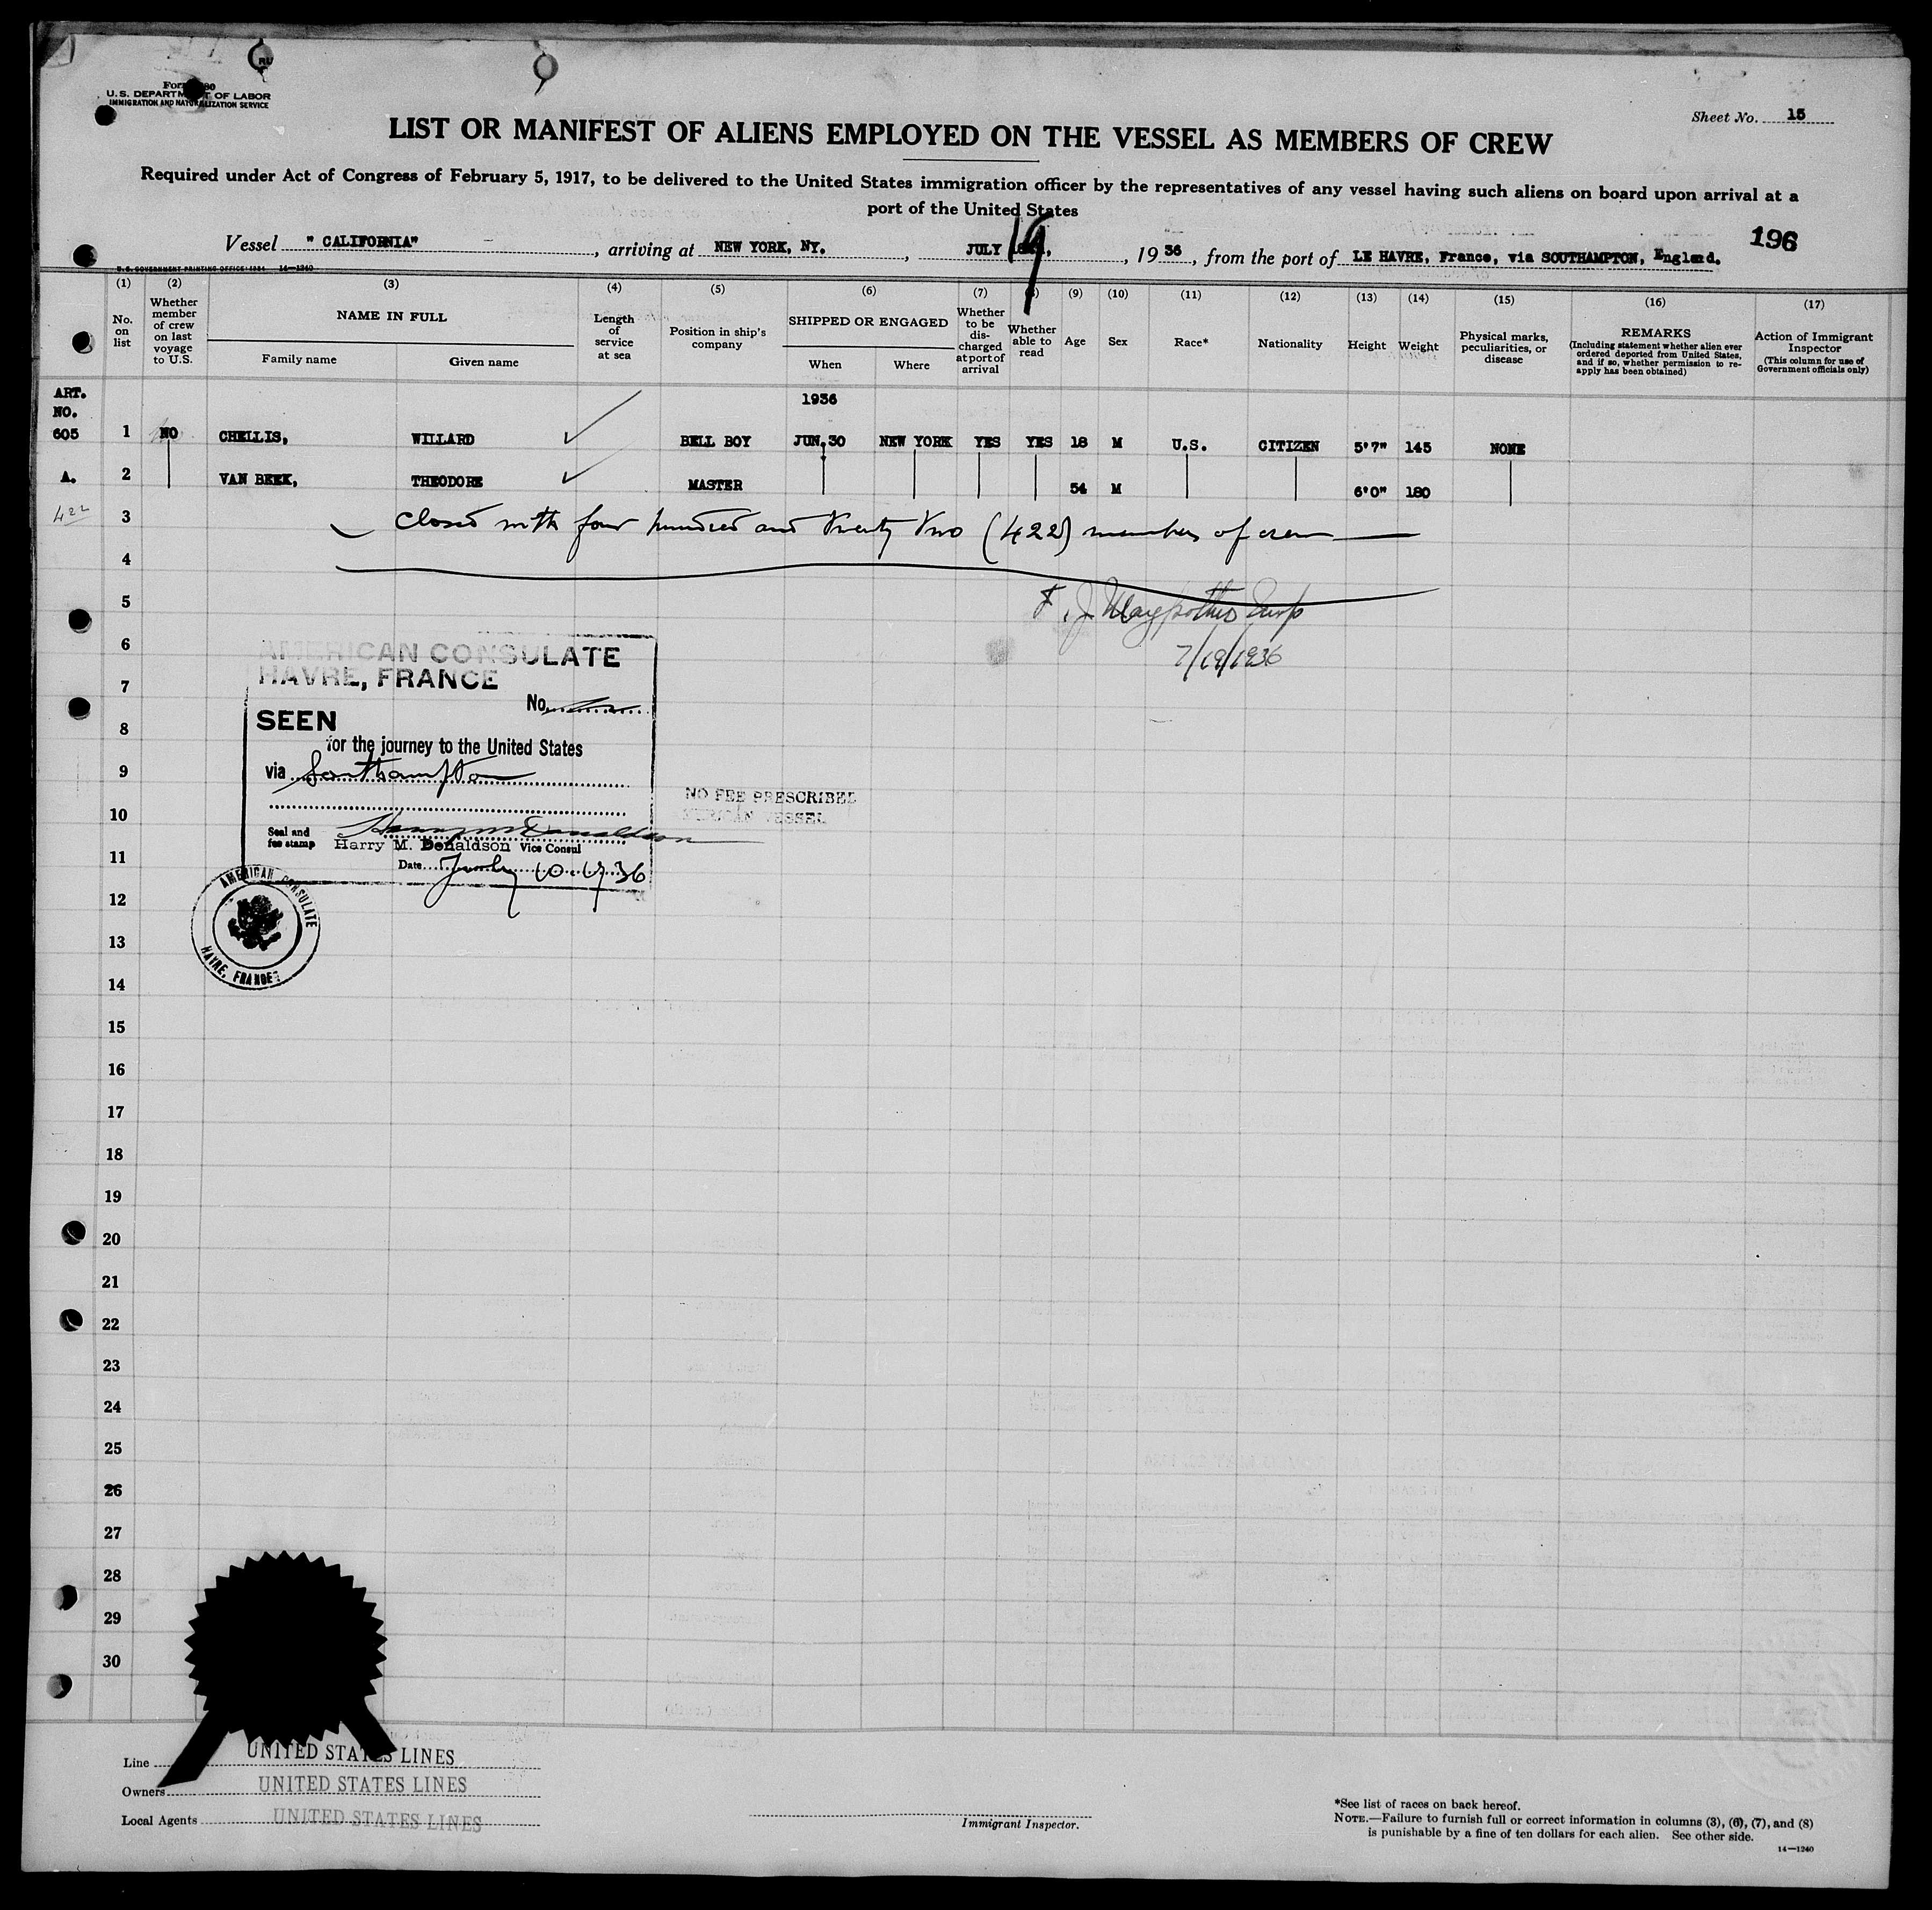 Form 680
U.S. DEPARTMENT OF LABOR
IMMIGRATION AND NATURALIZATION SERVICE
Sheet No. 15
LIST OR MANIFEST OF ALIENS EMPLOYED ON THE VESSEL AS MEMBERS OF CREW
Required under Act of Congress of February 5, 1917, to be delivered to the United States immigration officer by the representatives of any vessel having such aliens on board upon arrival at a
port of the United States
Vessel " CALIFORNIA" , arriving at NEW YORK, NY. , JULY 19 , 1936 , from the port of LE HAVRE, France, via SOUTHAMPTON, England.
196
U.S. GOVERNMENT PRINTING OFFICE: 1934 14—1240
(1) (2) (3) (4) (5) (6) (7) (9) (10) (11) (12) (13) (14) (15) (16) (17)
No. on list
Whether member of crew on last voyage to U.S.
NAME IN FULL
Family name Given name
Length of service at sea
Position in ship's company
SHIPPED OR ENGAGED
When Where
Whether to be discharged at port of arrival
Whether able to read
Age
Sex
Race*
Nationality
Height
Weight
Physical marks, peculiarities, or disease
REMARKS
(Including statement whether alien ever ordered deported from United States, and if so, whether permission to re-apply has been obtained)
Action of Immigrant Inspector
(This column for use of Government officials only)
ART.
NO.
1936
605 1 NO CHELLIS, WILLARD BELL BOY JUN.30 NEW YORK YES YES 18 M U.S. CITIZEN 5'7" 145 NONE
A. 2 VAN BEEK, THEODORE MASTER 54 M 6'0" 180
422 3 Closed with four hundred and twenty two (422) members of crew
4
5 F. J.
6
7/19/1936
AMERICAN CONSULATE
HAVRE, FRANCE
7
No.
SEEN
8
for the journey to the United States
9
via Southampton
NO FEE PRESCRIBED
AMERICAN VESSEL
10
Seal and fee stamp
Harry M Donaldson
Harry M. Donaldson Vice Consul
11
Date July 10 1936
AMERICAN CONSULATE
HAVRE, FRANCE
12
13
14
15
16
17
18
19
20
21
22
23
24
25
26
27
28
29
30
Line UNITED STATES LINES
Owners UNITED STATES LINES
Local Agents UNITED STATES LINES
Immigrant Inspector.
*See list of races on back hereof.
NOTE.—Failure to furnish full or correct information in columns (3), (6), (7), and (8)
is punishable by a fine of ten dollars for each alien. See other side.
14—1240